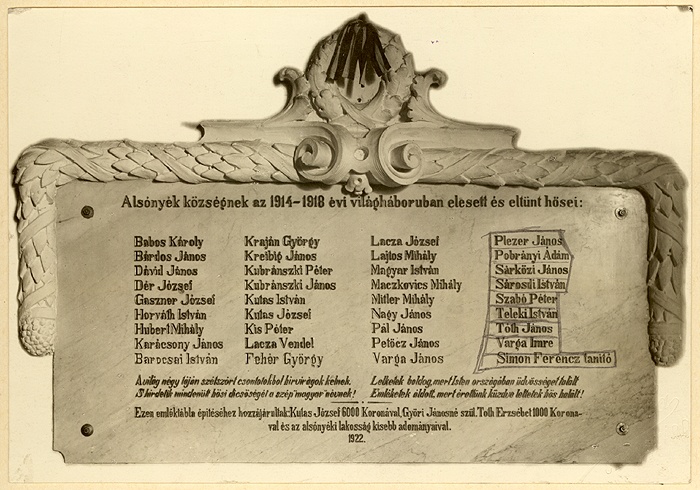 Alsónyék községnek az 1914-1918 évi világháboruban elesett és eltünt hösei:
Babos Károly
Bárdos János
Dávid János
Dér József
Gaszner József
Horváth István
Hubert Mihály
Karácsony János
Barocsai István
Kraján György
Kreibig János
Kubránszki Péter
Kubránszki János
Kutas István
Kutas József
Kis Péter
Lacza Vendel
Fehér György
Lacza József
Lajtos Mihály
Magyar István
Maczkovics Mihály
Mitler Mihály
Nagy János
Pál János
Petöcz János
Varga János
Plezer János
Pobrányi Ádám
Sárközi János
Sárosdi István
Szabó Péter
Teleki István
Tóth János
Varga Imre
Simon Ferencz tanító
A világ négy táján szétszórt csontokból hirvirágok kelnek.
S hirdetik mindenütt hősi dicsőségét a szép magyar névnek!
Lelketek boldog, mert Isten országában üdvösséget talált
Emléketek áldott, mert érettünk küzdve leltetek hős halált!
Ezen emléktábla épitéséhez hozzájárultak: Kutas József 6000 Koronával, Győri Jánosné szül. Tóth Erzsébet 1000 Korona-
val és az alsónyéki lakosság kisebb adományaival.
1922.